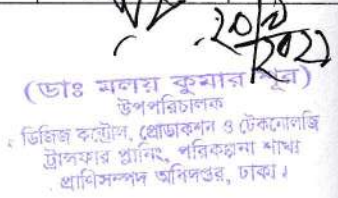 ২০২১
(ডাঃ মলয় কুমার শূর)
উপপরিচালক
ডিজিজ কন্ট্রোল, প্রোডাকশন ও টেকনোলজি
ট্রান্সফার প্লানিং, পরিকল্পনা শাখা
প্রাণিসম্পদ অধিদপ্তর, ঢাকা।